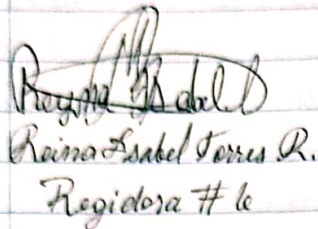 Reina Isabel
Reina Isabel Torres R.
Regidora # 6